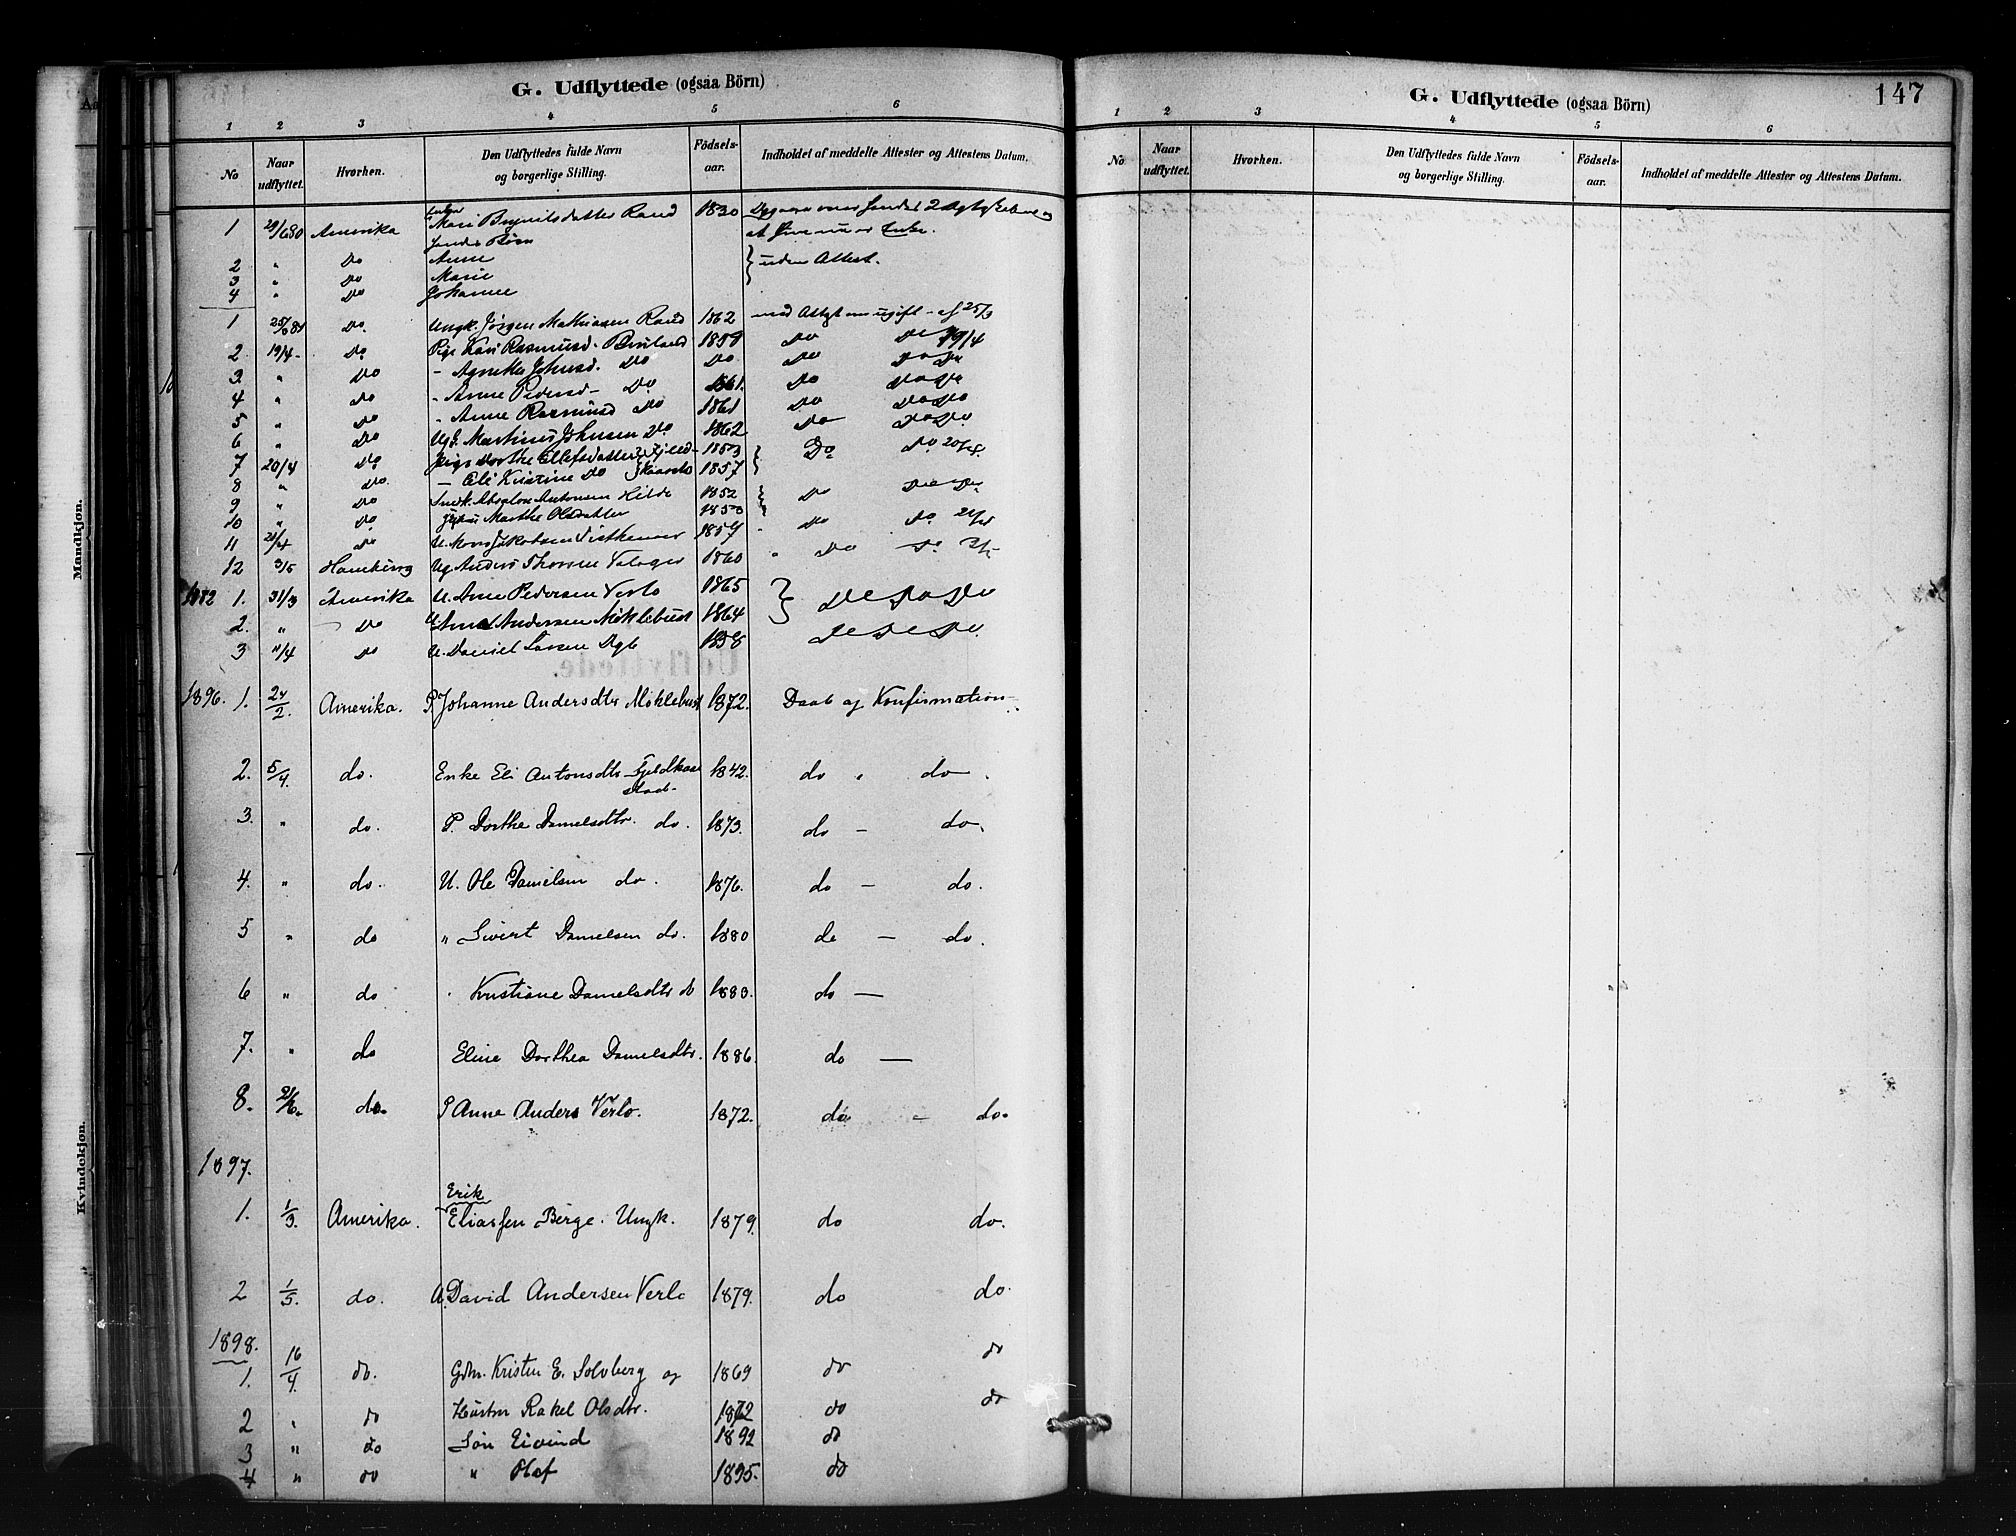 G. Udflyttede (ogsaa Börn)
1 2 3 4 5 6
No Naar udflyttet. Hvorhen. Den Udflyttedes fulde Navn og borgerlige Stilling. Födsels-aar. Indholdet af meddelte Attester og Attestens Datum.
1 29/6 80 Amerika Enke Mari 1830
Børn
2 " Do Anne uden Attest.
3 " Do Marie
4 " Do Johanne
1 25/3 81 Do Ungk. Jørgen Mathiassen Rand 1862 med Attest om ugift - af 25/3
2. 19/4 - Do Pige Kari Rasmusd. 1859 Do Do 19/4
3. " Do - Do Do. Do Do Do
4 " Do " Anne Pedersd - Do 1861. Do Do Do
5 " Do " Anne Rasmusd Do 1861 Do Do Do
6 " Do Ug. Martinus Johnsen Do 1862 Do Do Do
7 20/4 Do Pige Dorthe Ellefsdatter 1853 Do Do 20/4
8 " Do. - Eli Kristine Do 1857
9 " Do Absalon Antonsen Hilde 1852 Do Do Do
10 " Do Marthe Olsdatter 1850
11 Do U. Mons Jakobsen 1857 Do Do
12 3/5 Ug Anders 1860 " Do Do
1882 1. 31/3 Amerika U. Arne Pedersen Verlo 1865 Do Do Do
2. " Do U. Andersen Möklebust 1864
3 "/4 Do U. Daniel Larsen 1858 Do Do Do
1896. 1. 24/2. Amerika. P. Johanne Andersdtr Möklebust 1872. Daab og Konfirmation
2. 5/4. do. Enke Eli Antonsdtr 1842. do " do
3. " do. P. Dorthe Danielsdtr. do. 1873. do - do.
4. " do. U. Ole Danielsen do. 1876. do - do.
5 " do " Sivert Danielsen do. 1880 do - do.
6 " do " Kristiane Danielsdtr do 1883. do -
7. " do Eline Dorthea Danielsdtr. 1886. do -
8. do. P Anne Anders Verlo. 1872. do - do.
1897.
Erik
1. 1/3. Amerika. Eliassen Berge. Ungk. 1879. do do.
2 1/5. do. U. David Andersen Verlo 1879. do do.
1898.
1. 16/4. do. Gdm. Kristen E. Solvberg og 1869 do do
2 " do Hustru Rakel Olsdtr. 1872 do do
3 " do Søn Eivind 1892 do
4 " do " Olaf 1895. do
G. Udflyttede (ogsaa Börn) 147
1 2 3 4 5 6
No Naar udflyttet. Hvorhen. Den Udflyttedes fulde Navn og borgerlige Stilling. Födsels-aar. Indholdet af meddelte Attester og Attestens Datum.
Mandkjøn.
Kvindekjøn.